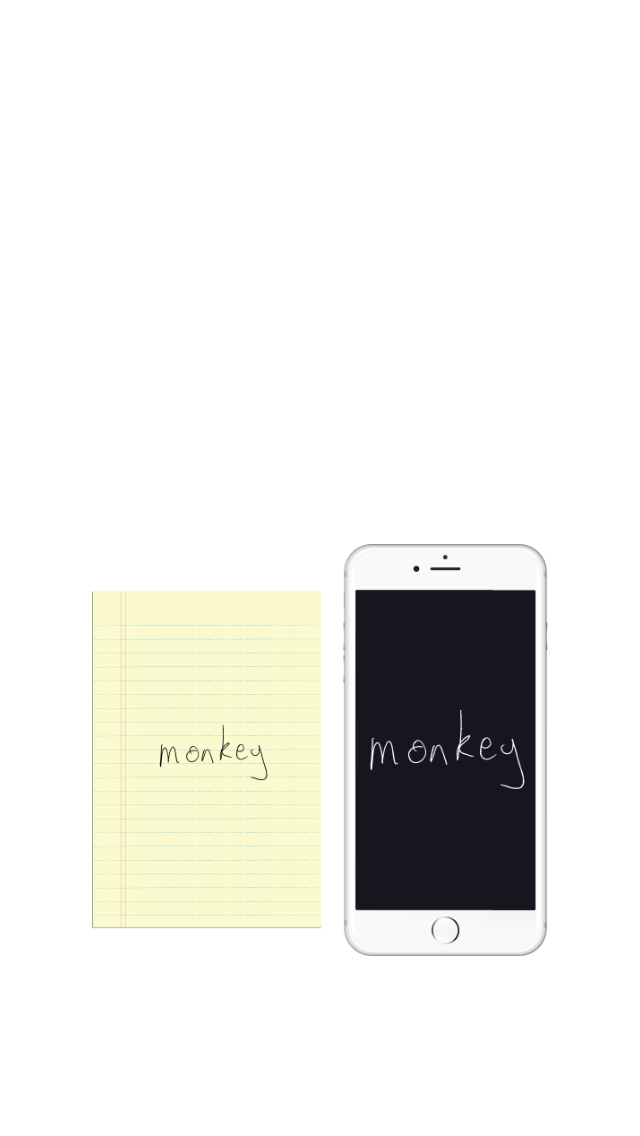 monkey
monkey